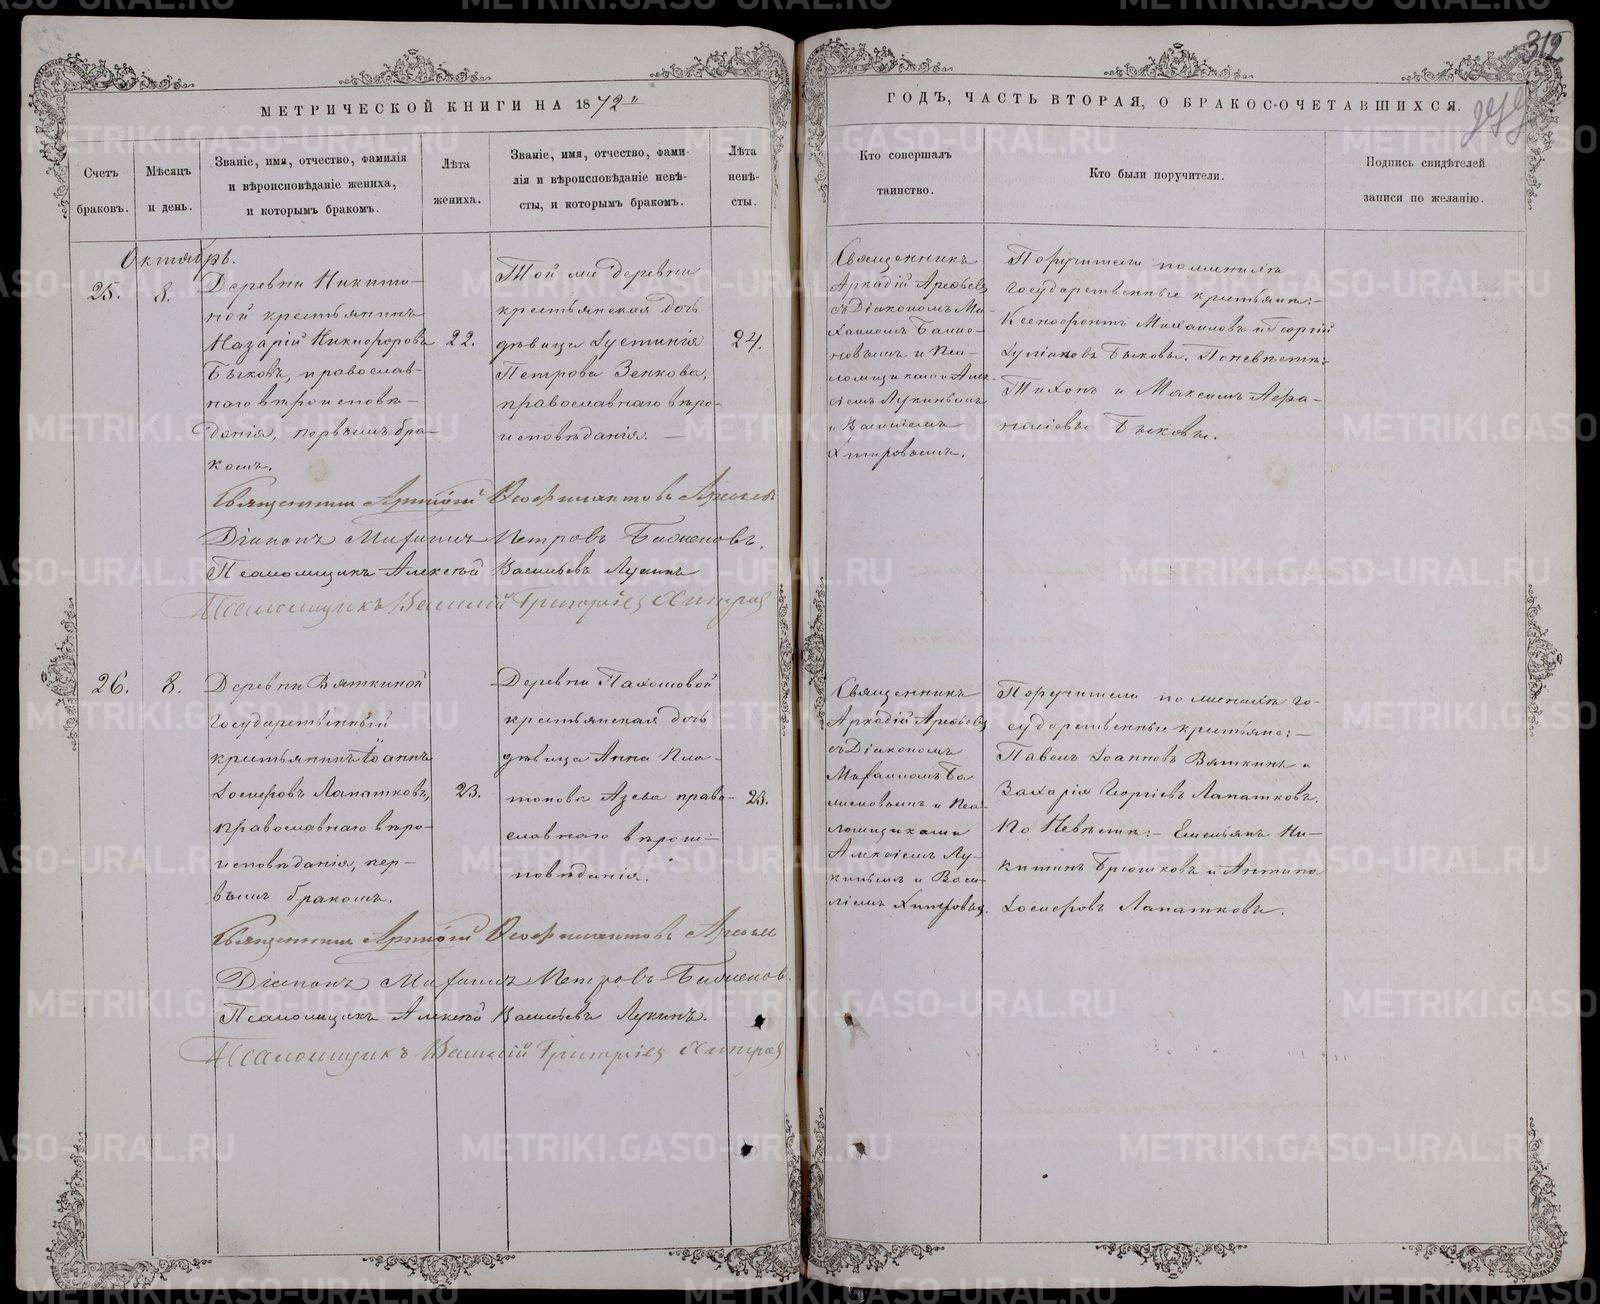 312
МЕТРИЧЕСКОЙ КНИГИ НА 1872
ГОДЪ, ЧАСТЬ ВТОРАЯ, О БРАКОСОЧЕТАВШИХСЯ.
Счетъ
браковъ.
Мѣсяцъ
и день.
Званіе, имя, отчество, фамилія
и вѣроисповѣданіе жениха,
и которымъ бракомъ.
Лѣта
жениха.
Званіе, имя, отчество, фами-
лія и вѣроисповѣданіе невѣ-
сты, и которымъ бракомъ.
Лѣта
невѣ-
сты.
Кто совершалъ
таинство.
Кто были поручители.
Подпись свидѣтелей
записи по желанію.
Октябрь.
25.
8.
Деревни Никити-
ной крестьянинъ
Назарій Никифоровъ
Быковъ, православ-
наго вѣроисповѣ-
данія, первымъ бра-
комъ.
22.
Той же деревни
крестьянская дочь
дѣвица Іустинія
Петрова Зенкова,
православнаго вѣро-
исповѣданія.
24.
Священникъ
Аркадій Арефьевъ
съ Діакономъ Ми-
хаиломъ
и Пса-
ломщиками Алек-
сіемъ Лукинымъ
и Василіемъ
Хитровымъ.
Поручители по женихѣ
государственные крестьяне:
Ксенофонтъ Михаиловъ и Георгій
Быковы. По невѣстѣ:
Тихонъ и Максимъ Афа-
насіевы Быковы.
Священникъ Аркадій Ѳеофилактовъ Арефьевъ
Діаконъ Михаилъ Петровъ
Псаломщикъ Алексѣй Васильевъ Лукинъ
Псаломщикъ Василій Григорьевъ Хитровъ
26.
8.
Деревни Вяткиной
государственный
крестьянинъ Іоаннъ
Лапатковъ,
православнаго вѣро-
исповѣданія, пер-
вымъ бракомъ.
23.
Деревни Пахомовой
крестьянская дочь
дѣвица Анна Пла-
тонова Азева право-
славнаго вѣроис-
повѣданія.
23.
Священникъ
Аркадій Арефьевъ
съ Діакономъ
Михаиломъ
и Пса-
ломщиками
Алексіемъ Лу-
кинымъ и Васи-
ліемъ Хитровымъ.
Поручители по женихѣ го-
сударственные крестьяне:
Павелъ Іоанновъ Вяткинъ и
Захарія Георгіевъ Лапатковъ.
По Невѣстѣ: Емельянъ Ни-
китинъ Брюшковъ и Антипа
Лапатковъ.
Священникъ Аркадій Ѳеофилактовъ Арефьевъ
Діаконъ Михаилъ Петровъ
Псаломщикъ Алексѣй Васильевъ Лукинъ.
Псаломщикъ Василій Григорьевъ Хитровъ
METRIKI.GASO-URAL.RU